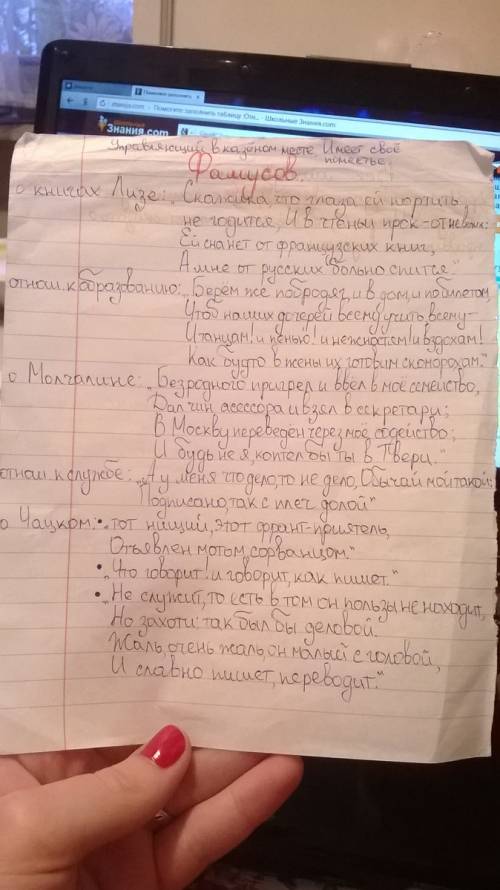 znanija.com
Помогите заполнить таблицу Отн... - Школьные Знания.com
Знания.com
Управляющий в казёном месте. Имеет своё
поместье.
Фамусов.
о книгах Лизе: „Скажи-ка, что глаза ей портить
не годится, И в чтеньи прок-от невелик:
Ей сна нет от французских книг,
А мне от русских больно спится."
отнош. к образованию: „Берём же побродяг, и в дом, и по билетам,
Чтоб наших дочерей всему учить, всему-
И танцам! и пенью! и нежностям! и вздохам!
Как будто в жены их готовим скоморохам."
о Молчалине: „Безродного пригрел и ввёл в моё семейство,
Дал чин асессора и взял в секретари;
В Москву переведен через моё содейство;
И будь не я, коптел бы ты в Твери."
отнош. к службе: „А у меня что дело, то не дело, Обычай мой такой:
Подписано, так с плеч долой"
о Чацком: • „тот нищий, этот франт-приятель,
Отъявлен мотом, сорванцом."
• „Что говорит! и говорит, как пишет."
• „Не служит, то есть в том он пользы не находит,
Но захоти: так был бы деловой.
Жаль, очень жаль, он малый с головой,
И славно пишет, переводит."